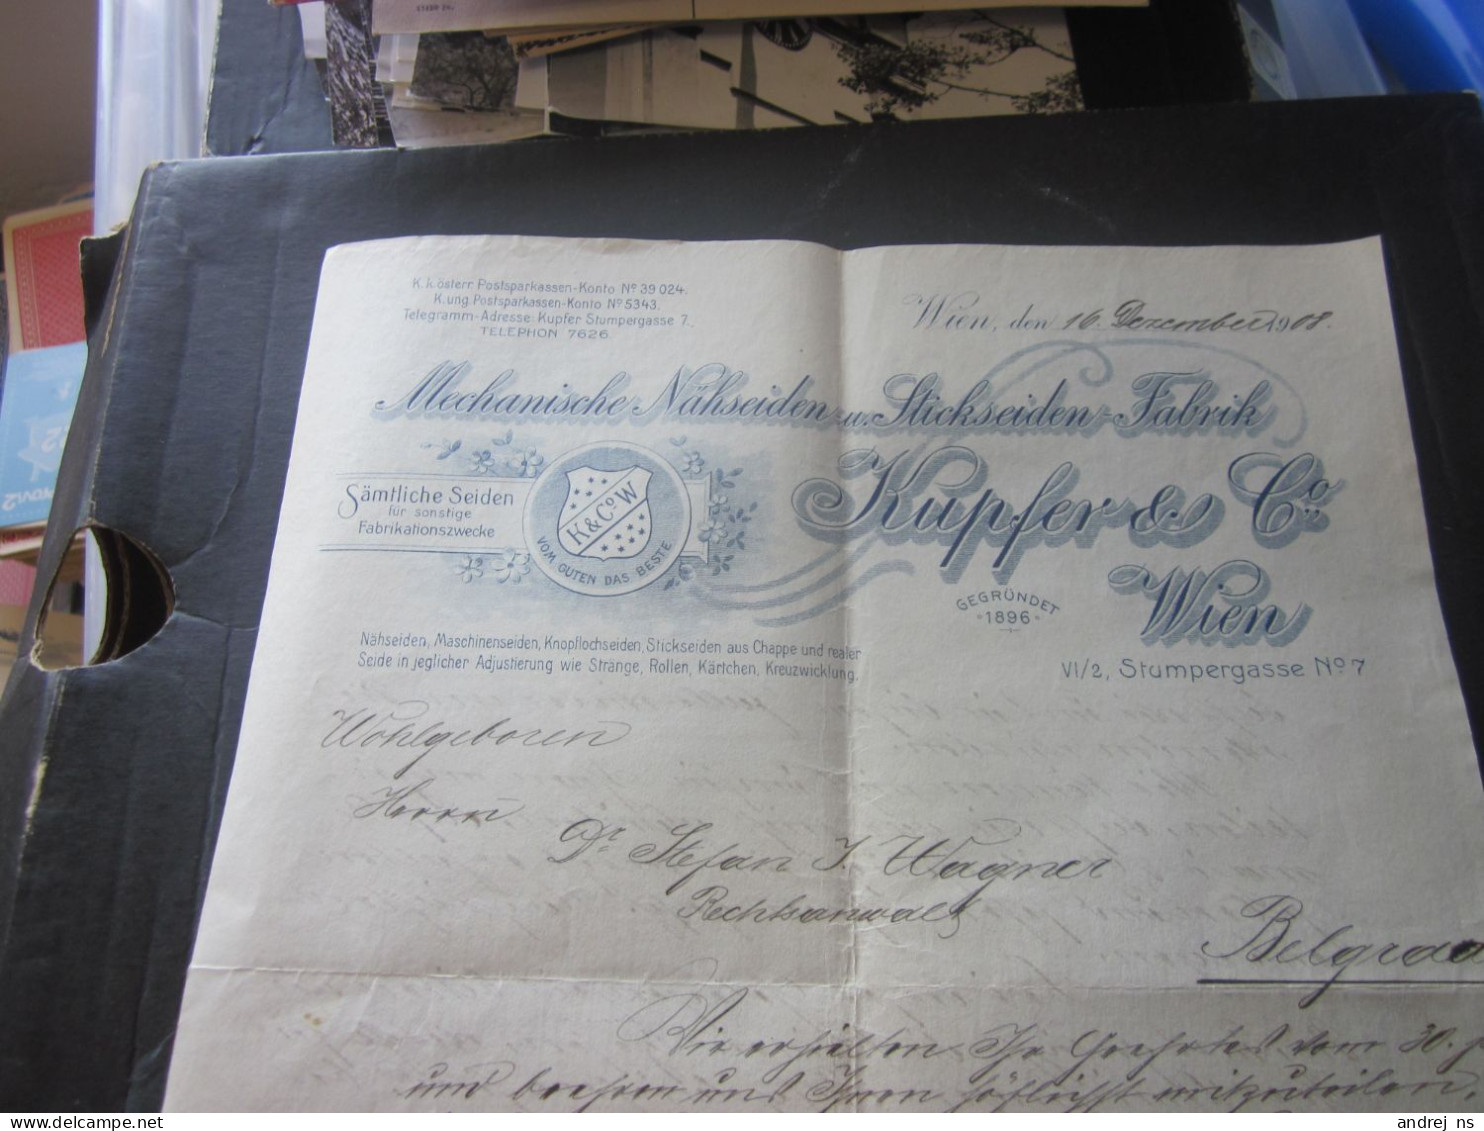 K. k. österr. Postsparkassen-Konto Nº 39 024.
K. ung. Postsparkassen-Konto Nº 5343.
Telegramm-Adresse: Kupfer Stumpergasse 7.
TELEPHON 7626
Wien, den 16. Dezember 1908.
Mechanische Nähseiden u. Stickseiden-Fabrik
Kupfer & Co.
Wien
Sämtliche Seiden
für sonstige
Fabrikationszwecke
K & Co W
VOM GUTEN DAS BESTE
GEGRÜNDET
1896
Nähseiden, Maschinenseiden, Knopflochseiden, Stickseiden aus Chappe und realer
Seide in jeglicher Adjustierung wie Stränge, Rollen, Kärtchen, Kreuzwicklung.
VI/2, Stumpergasse Nº 7
Wohlgeboren
Herrn
Dr. Stefan J. Wagner
Rechtsanwalt
Belgrad
Wir erhielten Ihr Geehrtes vom 30.
und beehren uns Ihnen höflichst mitzuteilen,
andrej ns